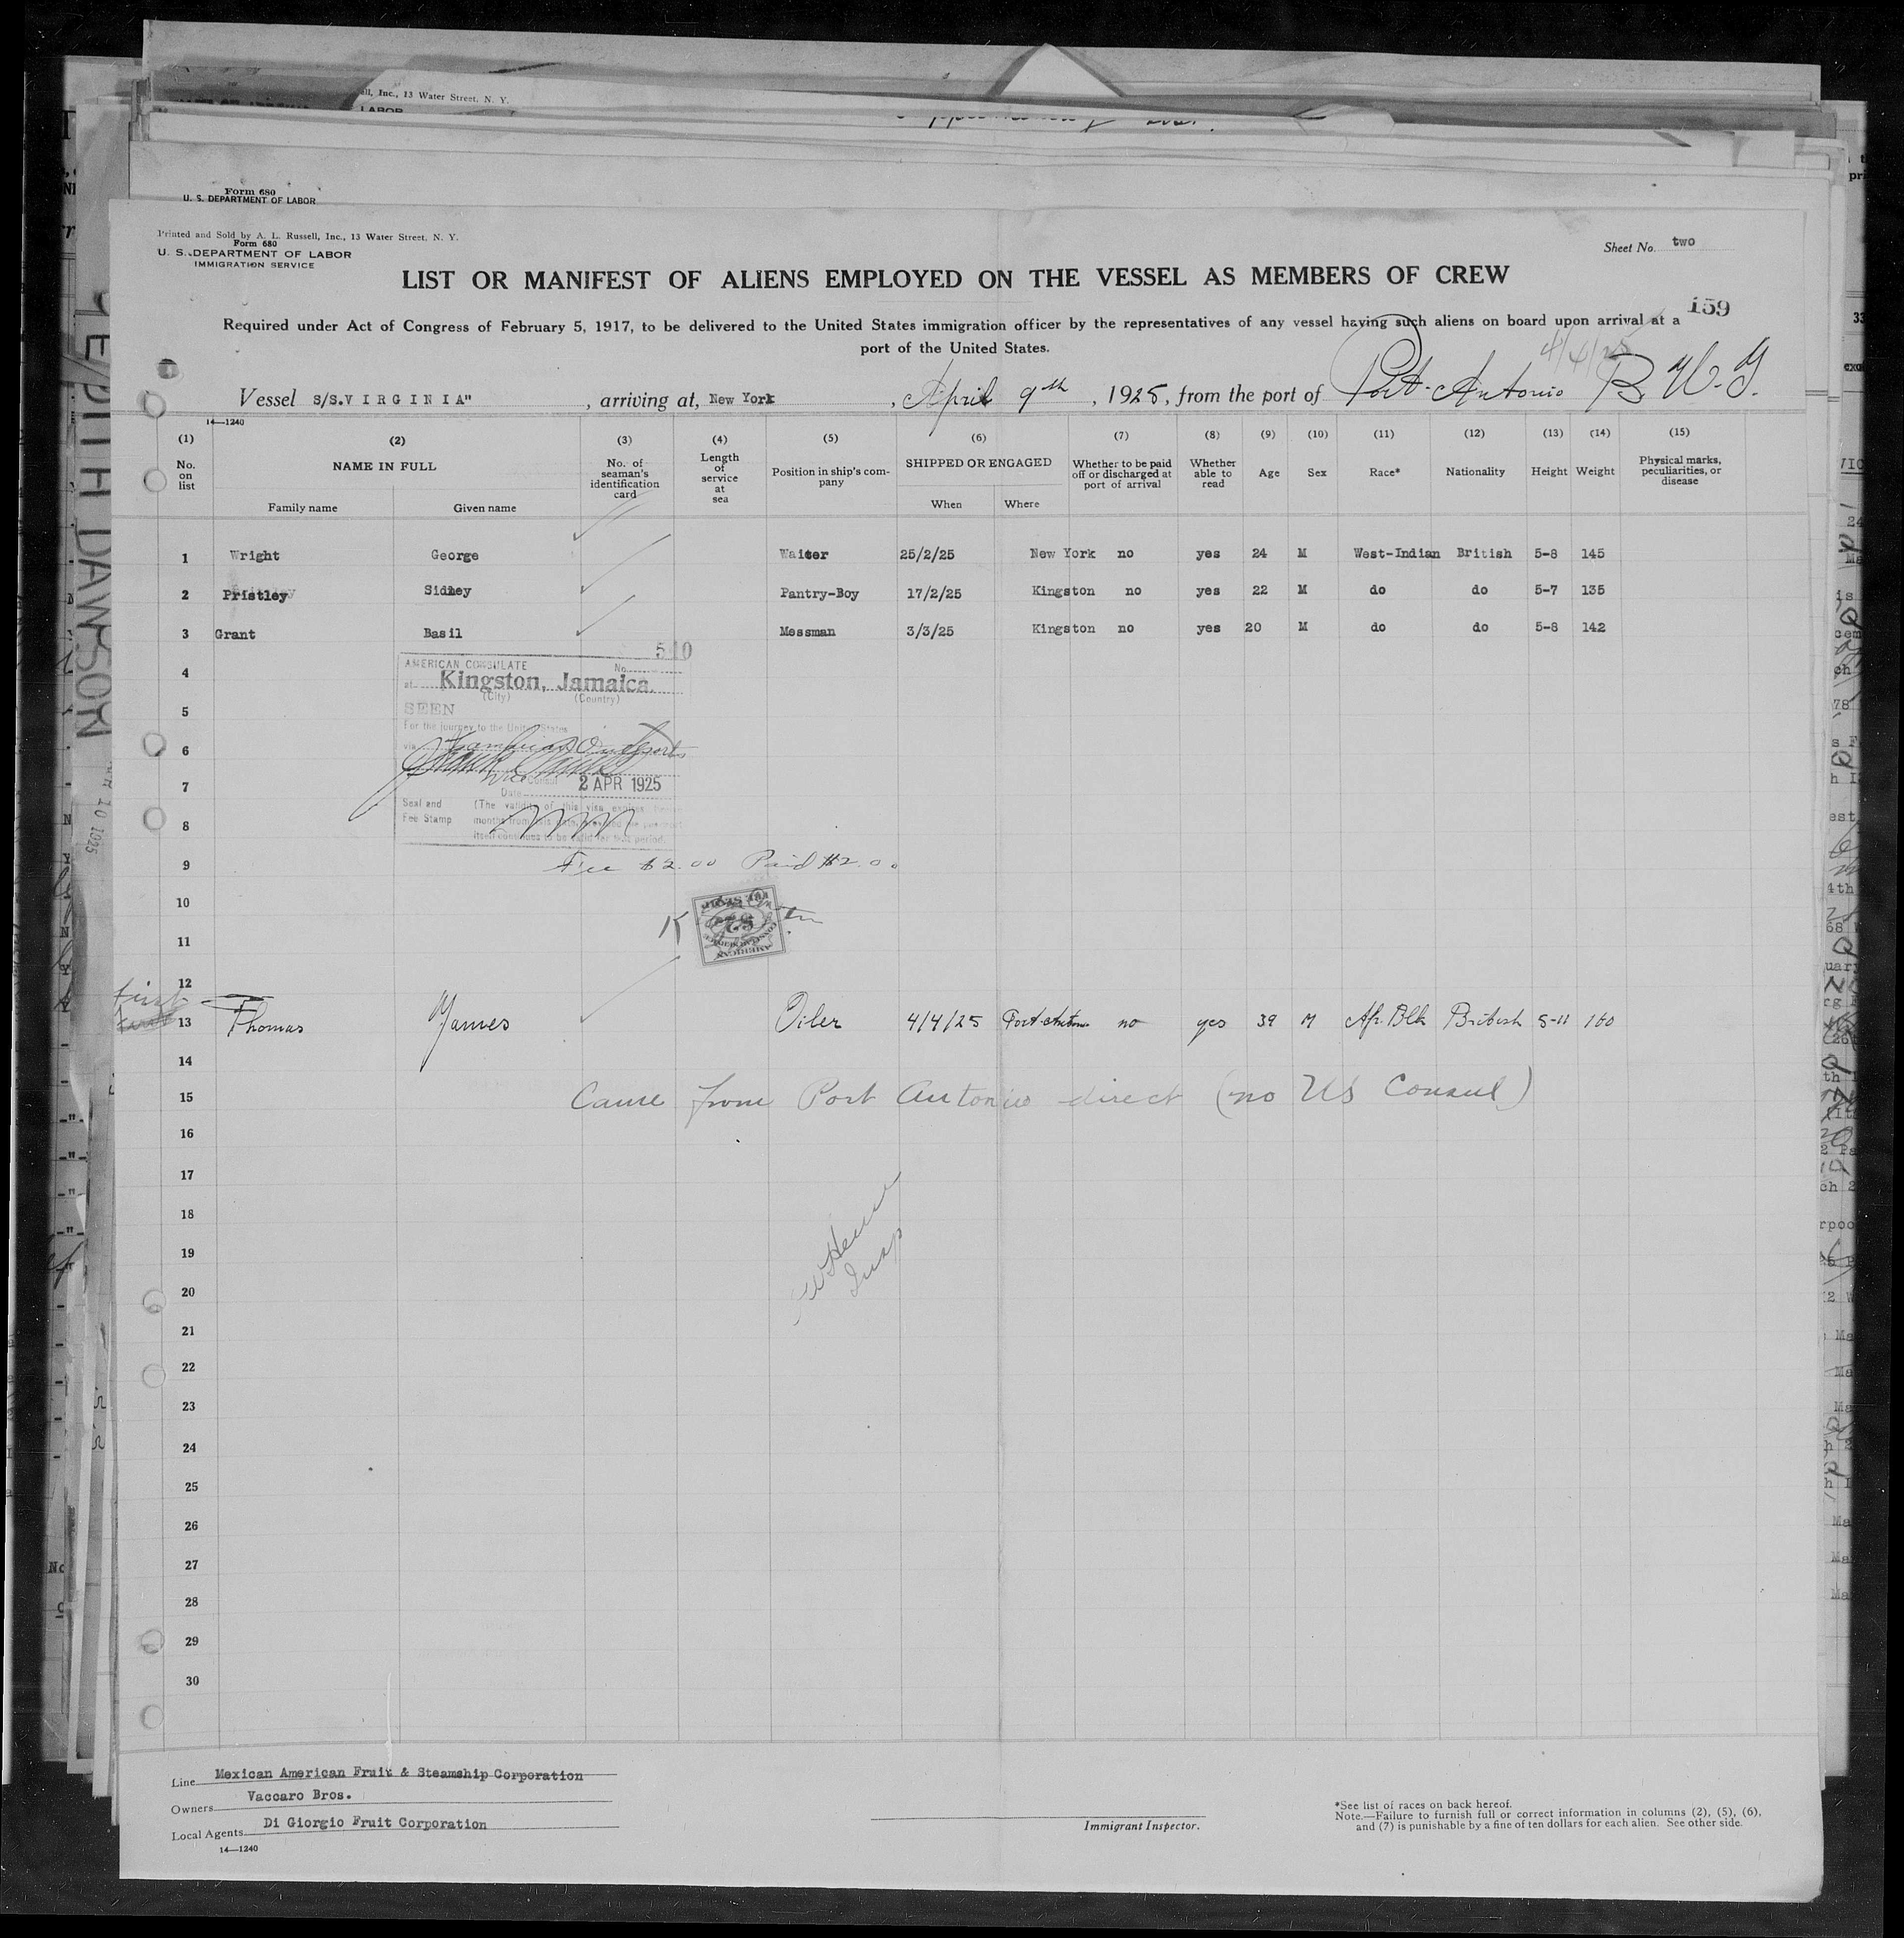 ll, Inc., 13 Water Street, N. Y.
LABOR
Form 680
U. S. DEPARTMENT OF LABOR
Printed and Sold by A. L. Russell, Inc., 13 Water Street, N. Y.
Form 680
U. S. DEPARTMENT OF LABOR
IMMIGRATION SERVICE
Sheet No. two
LIST OR MANIFEST OF ALIENS EMPLOYED ON THE VESSEL AS MEMBERS OF CREW
159
Required under Act of Congress of February 5, 1917, to be delivered to the United States immigration officer by the representatives of any vessel having such aliens on board upon arrival at a
port of the United States.
4/4/25
Vessel S/S.VIRGINIA", arriving at, New York, April 9th, 1925, from the port of Port-Antonio B.W.I.
14—1240
(1) (2) (3) (4) (5) (6) (7) (8) (9) (10) (11) (12) (13) (14) (15)
No. on list NAME IN FULL No. of seaman's identification card Length of service at sea Position in ship's company SHIPPED OR ENGAGED Whether to be paid off or discharged at port of arrival Whether able to read Age Sex Race* Nationality Height Weight Physical marks, peculiarities, or disease
Family name Given name When Where
1 Wright George Waiter 25/2/25 New York no yes 24 M West-Indian British 5-8 145
2 Pristley Sidney Pantry-Boy 17/2/25 Kingston no yes 22 M do do 5-7 135
3 Grant Basil Messman 3/3/25 Kingston no yes 20 M do do 5-8 142
540
AMERICAN CONSULATE No.
4
at Kingston, Jamaica.
(City) (Country)
5
SEEN
For the journey to the United States
6
via
7
Date 2 APR 1925
Seal and Fee Stamp
(The validity of this visa expires
8
months from this date, provided the passport
itself continues to be valid for that period.
9
Fee $2.00 Paid $2.00
10
11
12
first
13 Thomas James Oiler 4/4/25 Port-Antonio no yes 39 M Afr. Blk British 5-11 160
14
15 Came from Port Antonio direct (no US Consul)
16
17
18
19
Insp
20
21
22
23
24
25
26
27
28
29
30
Line Mexican American Fruit & Steamship Corporation
Owners Vaccaro Bros.
Local Agents Di Giorgio Fruit Corporation
14—1240
Immigrant Inspector.
*See list of races on back hereof.
Note.—Failure to furnish full or correct information in columns (2), (5), (6),
and (7) is punishable by a fine of ten dollars for each alien. See other side.